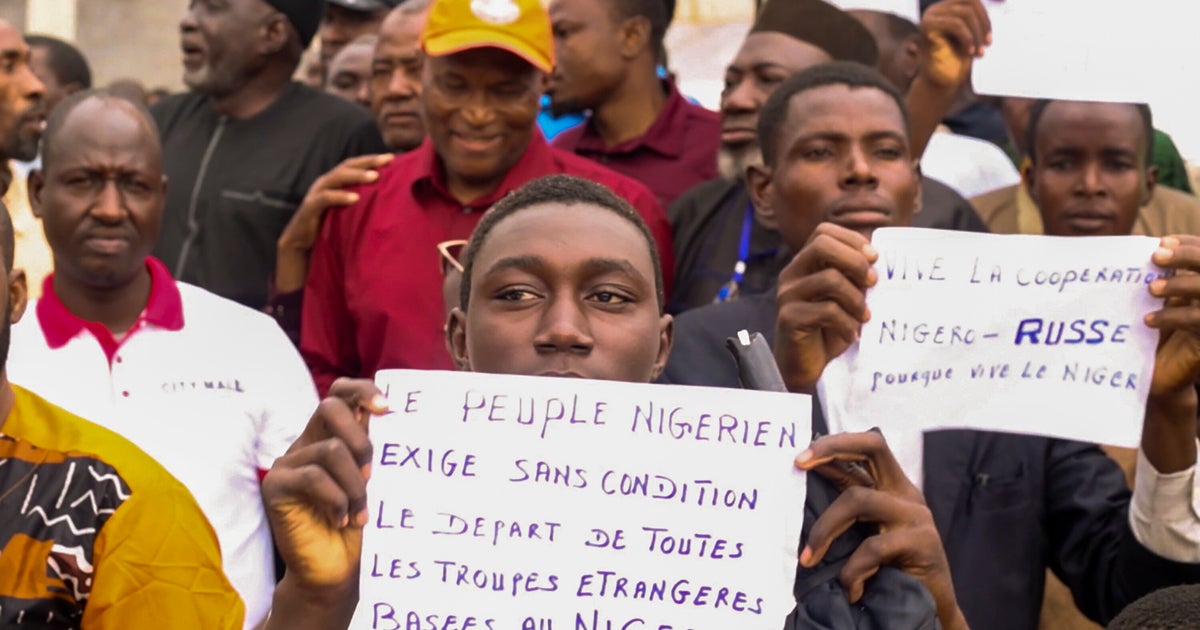 CITY MALL
LE PEUPLE NIGERIEN
EXIGE SANS CONDITION
LE DEPART DE TOUTES
LES TROUPES ETRANGERES
BASEES AU NIGER
VIVE LA COOPERATION
NIGERO - RUSSE
POURQUE VIVE LE NIGER